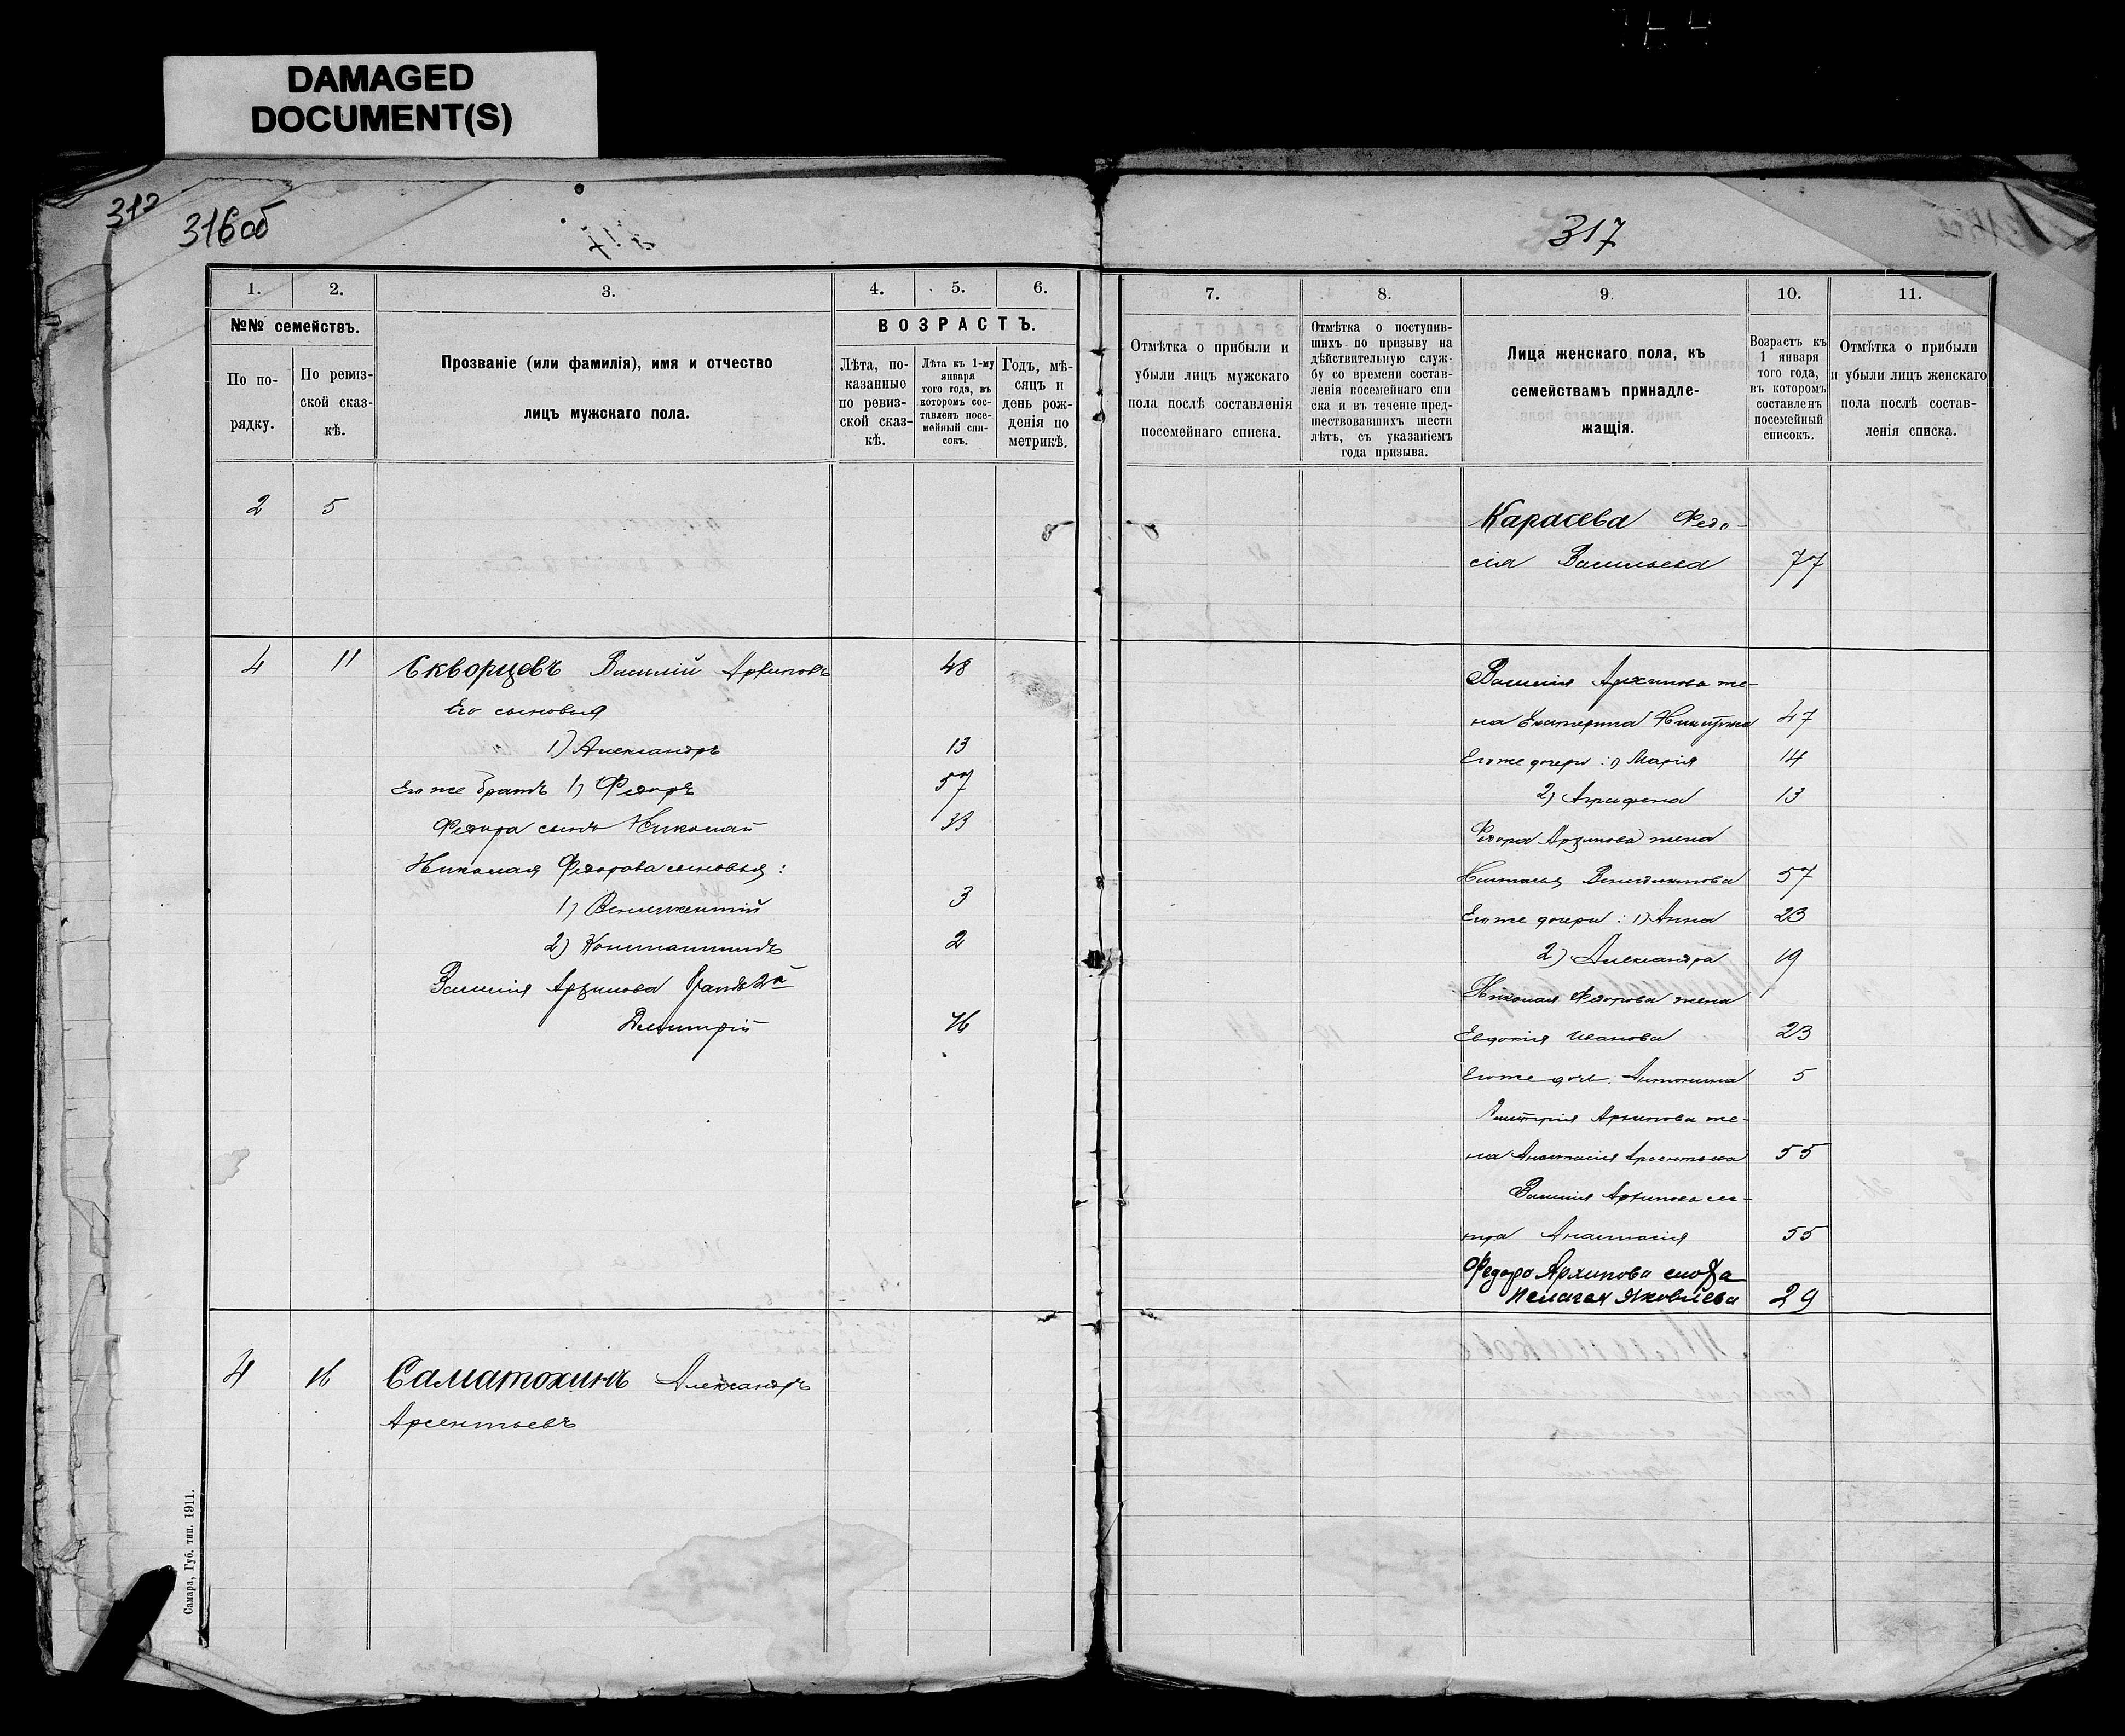 DAMAGED
DOCUMENT(S)
312
316об
317
1.
2.
3.
4.
5.
6.
№№ семействъ.
ВОЗРАСТЪ.
По по-
рядку.
По ревиз-
ской сказ-
кѣ.
Прозваніе (или фамилія), имя и отчество
лицъ мужскаго пола.
Лѣта, по-
казанные
по ревиз-
ской сказ-
кѣ.
Лѣта къ 1-му
января
того года, въ
которомъ сос-
тавленъ посе-
мейный спи-
сокъ.
Годъ, мѣ-
сяцъ и
день рож-
денія по
метрикѣ.
2 5
4 11 Скворцевъ Василій Архиповъ 48
Его сыновья
1) Александръ 13
Его же братъ 1) Федоръ 57
Федора сынъ Николай 33
Николая Федорова сыновья:
1) 3
2) Константинъ 2
Василія Архипова братъ 2й
Дмитрій
4 16 Саматохинъ Александръ
Арсентьевъ
Самара, Губ. тип. 1911.
7.
8.
9.
10.
11.
Отмѣтка о прибыли и
убыли лицъ мужскаго
пола послѣ составленія
посемейнаго списка.
Отмѣтка о поступив-
шихъ по призыву на
дѣйствительную служ-
бу со времени состав-
ленія посемейнаго спи
ска и въ теченіе пред-
шествовавшихъ шести
лѣтъ, съ указаніемъ
года призыва.
Лица женскаго пола, къ
семействамъ принадле-
жащія.
Возрастъ къ
1 января
того года,
въ которомъ
составленъ
посемейный
списокъ.
Отмѣтка о прибыли
и убыли лицъ женскаго
пола послѣ состав-
ленія списка.
Карасева Федо-
сія Васильева 77
Василія Архипова же-
на Екатерина Никитина 47
Его же дочери: 1) Марія 14
2) Аграфена 13
Федора Архипова жена
Наталья Венидиктова 57
Его же дочери: 1) Анна 23
2) Александра 19
Николая Федорова жена
Евдокія Иванова 23
Его же дочь: Антонина 5
Дмитрія Архипова же-
на Анастасія Арсентьева 55
Василія Архипова се-
стра Анастасія 55
Федора Архипова сноха
Пелагея Яковлева 29